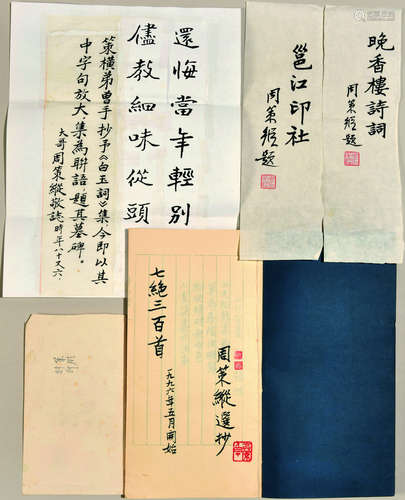 還悔當年輕別
儘教細味從頭
策橫弟曾手抄予《白玉詞》集今即以其
中字句放大集為聯語題其墓碑。
大哥周策縱敬誌時年八十又六.
晚香樓詩詞
周策縱題
邕江印社
周策縱題
七絕三百首
一九九六年五月開始
周策縱選抄